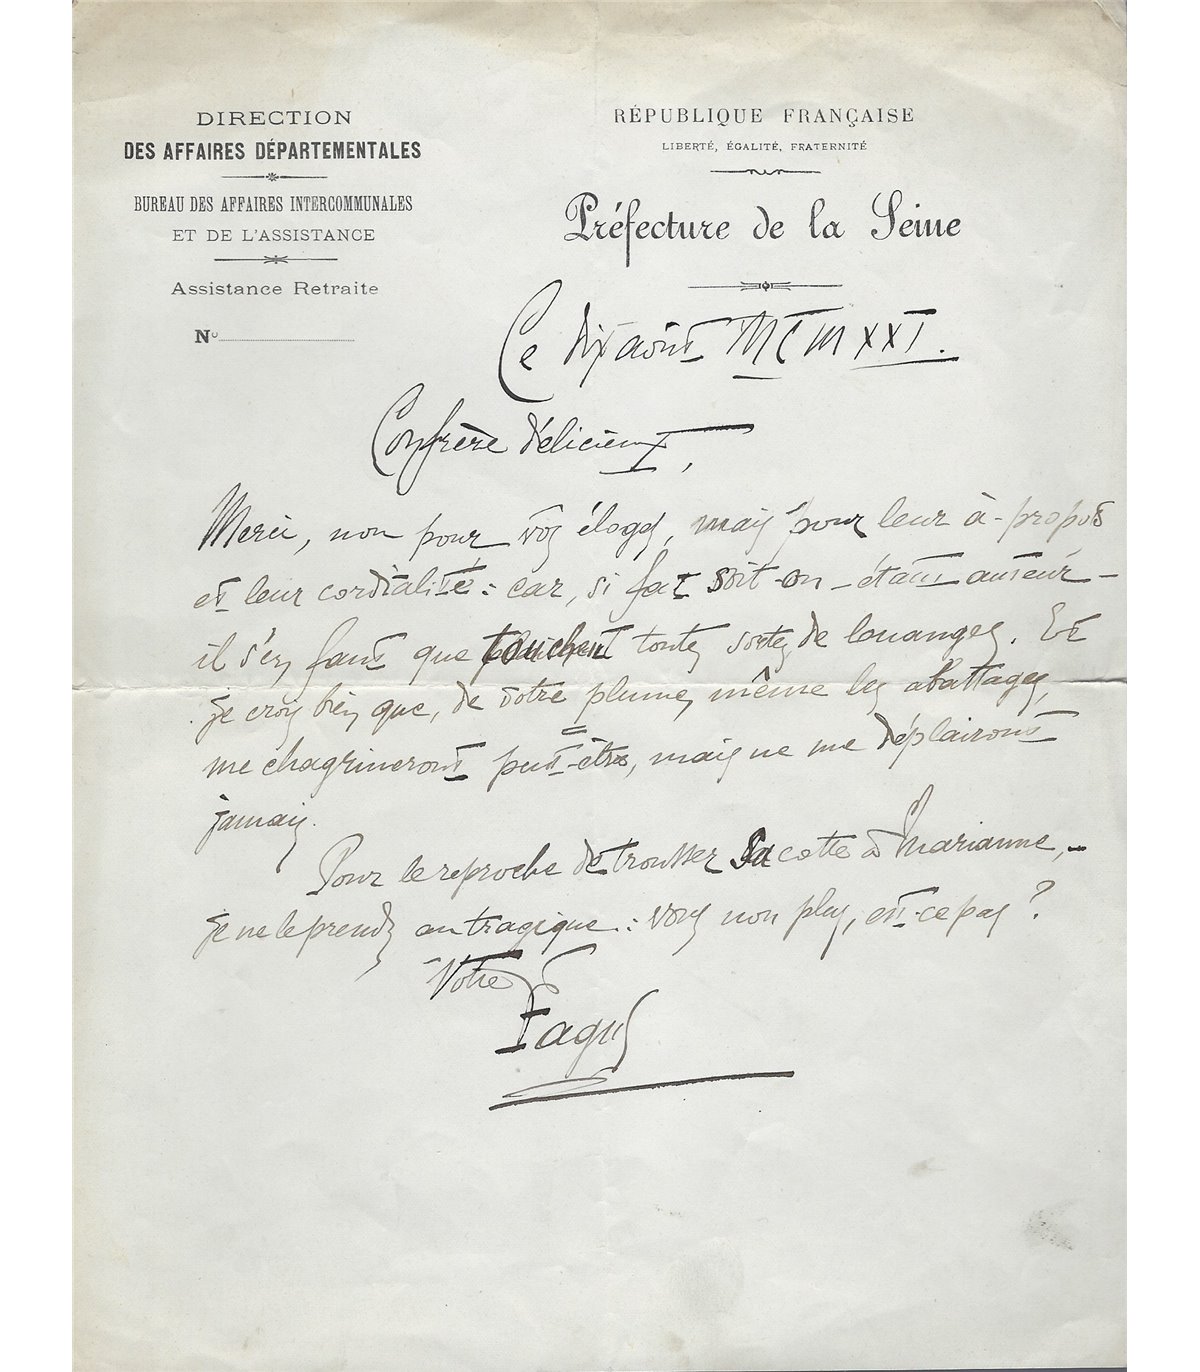 DIRECTION
DES AFFAIRES DÉPARTEMENTALES
BUREAU DES AFFAIRES INTERCOMMUNALES
ET DE L'ASSISTANCE
Assistance Retraite
No
RÉPUBLIQUE FRANÇAISE
LIBERTÉ, ÉGALITÉ, FRATERNITÉ
Préfecture de la Seine
Ce dix août MCMXXI.
Confrère délicieux,
Merci, non pour vos éloges, mais pour leur à-propos
et leur cordialité : car, si fat soit-on – étant auteur –
il s'en faut que touchent toutes sortes de louanges. Et
je crois bien que, de votre plume, même les abattages,
me chagrineront peut-être, mais ne me déplairont
jamais.
Pour le reproche de trousser sa cotte à Marianne, –
je ne le prends au tragique : vous non plus, est-ce pas ?
Votre
Fagus